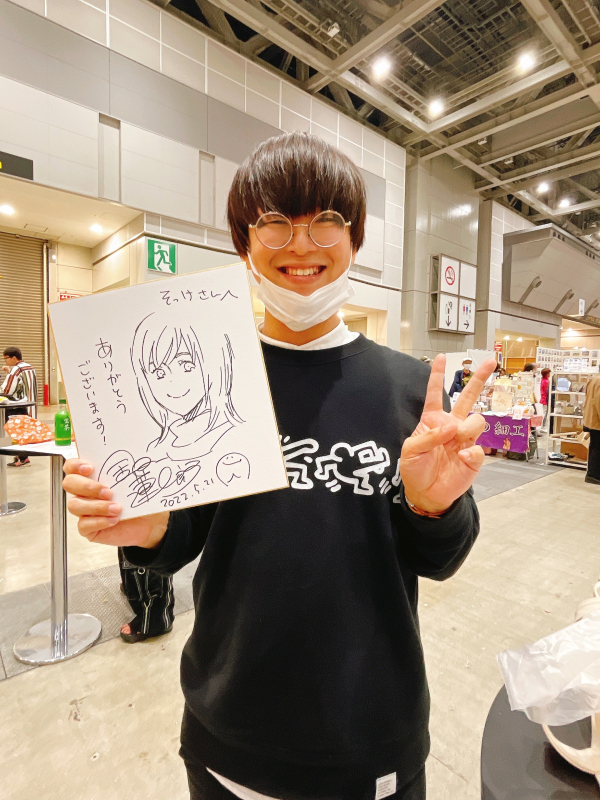 そっけさんへ
ありがとう
ございます!
2022.5.21
細工